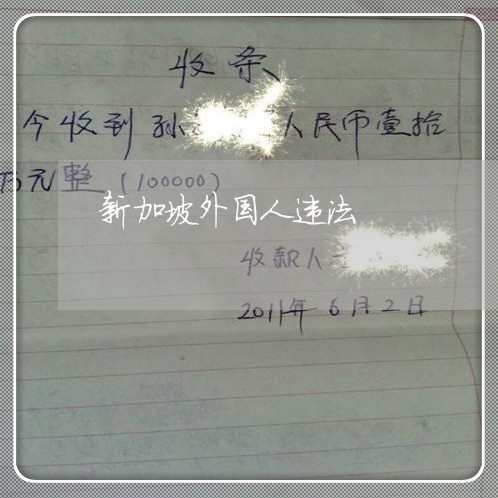 收条
今收到孙 人民币壹拾
万元整（100000）
新加坡外国人违法
收款人
2011年6月2日